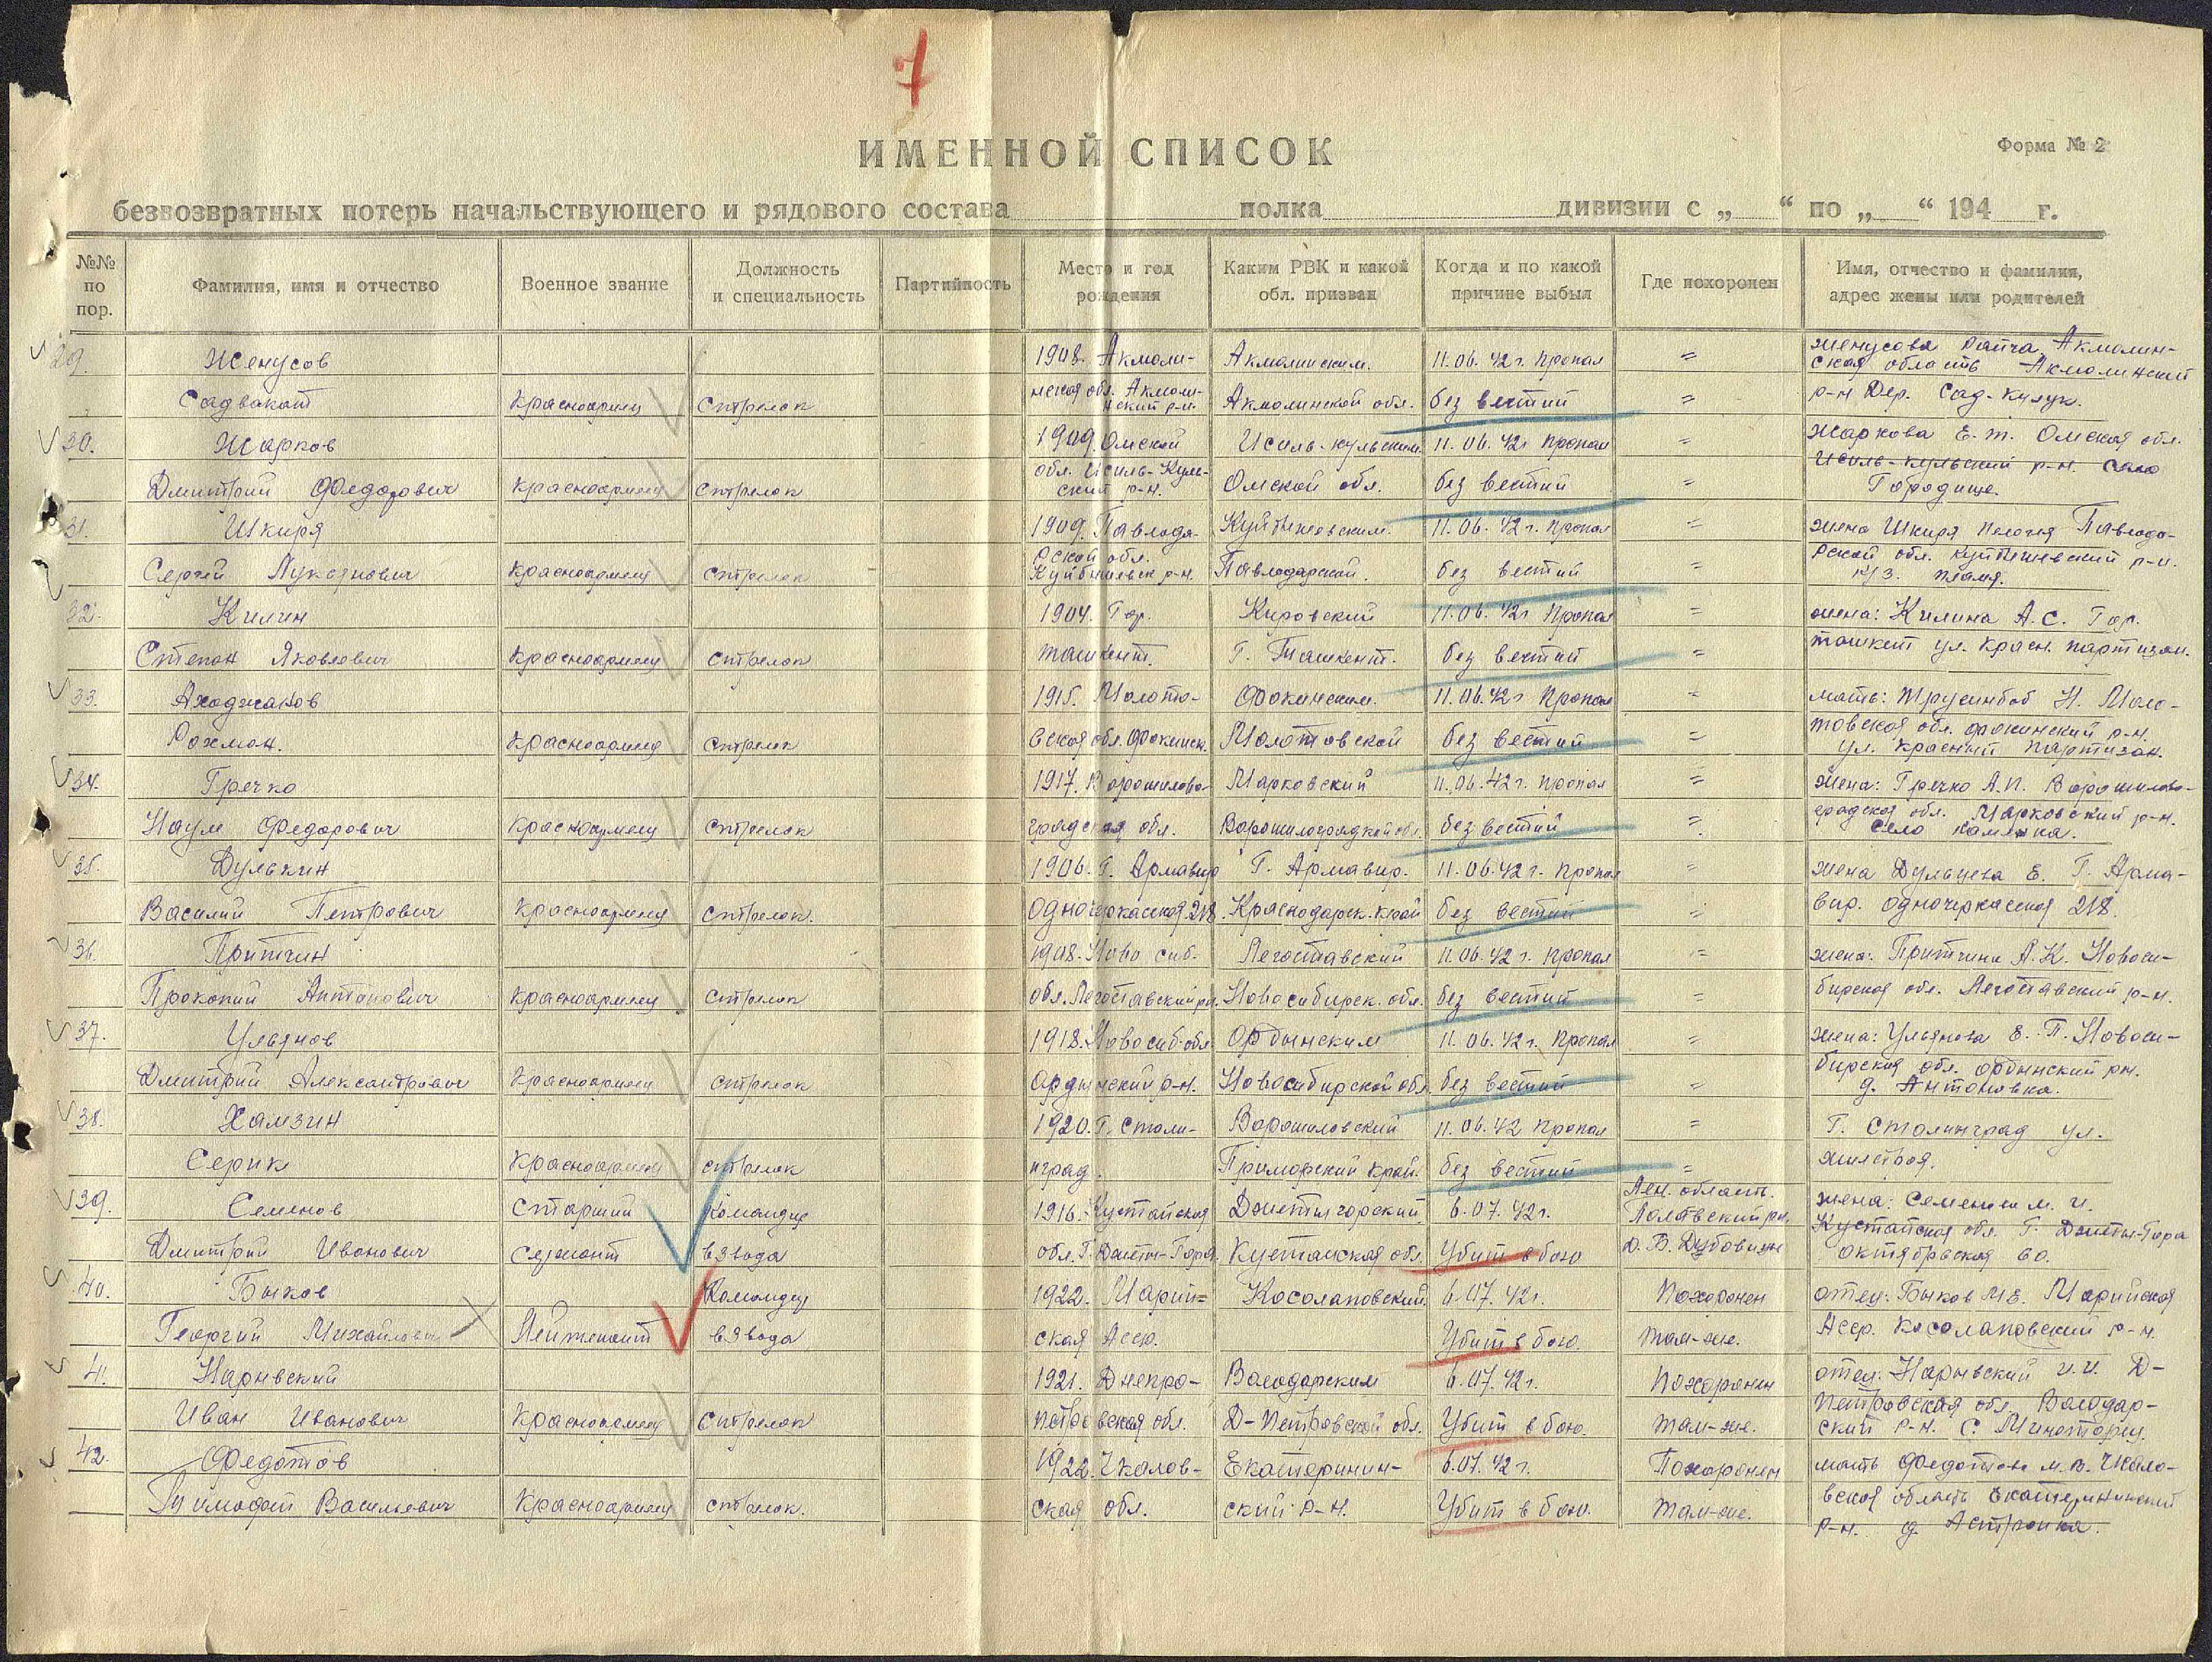 7
ИМЕННОЙ СПИСОК
Форма № 2
безвозвратных потерь начальствующего и рядового состава полка дивизии с „ “ по „ “ 194 г.
№№ по пор.
Фамилия, имя и отчество
Военное звание
Должность и специальность
Партийность
Место и год рождения
Каким РВК и какой обл. призван
Когда и по какой причине выбыл
Где похоронен
Имя, отчество и фамилия, адрес жены или родителей
29. Женусов 1908. Акмоли- Акмолинским. 11.06.42 г. Пропал = Женусова Акмолин-
ская область Акмолинский
Садвакат Красноармеец Стрелок нская обл. Акмоли-нский р-н. Акмолинской обл. без вестий = р-н Дер. Сад-Кулук.
30. Жарков 1909. Омской Исиль-кульским 11.06.42 г Пропал = Жаркова Е.т. Омская обл.
Дмитрий Федорович Красноармеец Стрелок обл. Исиль-Куль-ский р-н. Омской обл. без вестий = Исиль-кульский р-н. село Городище.
31. Шкиря 1909. Павлода- Куйбышевским. 11.06.42 г. Пропал = жена Шкиря Павлода-
Сергей Лукоянович Красноармеец Стрелок рской обл. Куйбышевск р-н. Павлодарской. без вестий = рской обл. Куйбышевский р-н.
к/з. пламя.
32. Килин 1904. Гор. Кировский 11.06.42 г Пропал = жена: Килина А.С. Гор.
Степан Яковлевич Красноармеец Стрелок Ташкент. Г. Ташкент. без вестий = ташкент ул. Красн. партизан.
33. Аходжанов 1915. Молото- Фокинским. 11.06.42 г Пропал = мать: Н. Моло-
Рахман. Красноармеец Стрелок вская обл. Фокинск. Молотовской без вестий = товская обл. фокинский р-н.
ул. красный партизан.
34. Гречко 1917. Ворошилово- Марковский 11.06.42 г. Пропал = Жена: Гречко А.П. Ворошилово-
Наум Федорович Красноармеец Стрелок градская обл. Ворошилоградской обл. без вестий = градская обл. Марковский р-н.
село каменка.
35. Дулькин 1906. Г. Армавир Г. Армавир. 11.06.42 г. Пропал = жена Е. Г. Арма-
Василий Петрович Красноармеец Стрелок. Одночеркасская 218. Краснодарск. край без вестий = вир. Одночеркасская 218.
36. Притчин 1908. Ново сиб. Легоставский 11.06.42 г. Пропал = жена: Притчина А.К. Новоси-
Прокопий Антонович Красноармеец Стрелок обл. Легоставский р-н. Новосибирск. обл. без вестий = бирская обл. Легоставский р-н.
37. Ульянов 1918. Новосиб. обл. Ордынским 11.06.42 г. Пропал = жена: Ульянова Е.П. Новоси-
Дмитрий Александрович Красноармеец Стрелок Ордынский р-н. Новосибирской обл. без вестий = бирская обл. ордынский рн.
д. Антоновка.
38. Хамзин 1920. Г. Стали- Ворошиловский 11.06.42 Пропал = Г. Сталинград ул.
Серик Красноармеец стрелок нград. Приморский край. без вестий = жилстроя.
39. Семенов Старший Командир 1916. Кустанайская Джетыгорский 6.07.42 г. Лен. область. жена: м.и.
Дмитрий Иванович Сержант взвода обл. Г. Джеты-Гора Кустанская обл. Убит в бою Полавский рн. Д.Б. Дубовицы Кустанайская обл. Г. Джеты-Гора
октябрьская 60.
40. Быков Командир 1922. Марий= Косолаповский. 6.07.42 г. Похоронен отец: Быков М.Е. Марийская
Георгий Михайлович Лейтенант взвода ская Асср. Убит в бою. там-же. Асср. Косолаповский р-н.
41. Нарывский 1921. Днепро- Володарским 6.07.42 г. Похоронен отец: Нарывский И.И. Д-
Иван Иванович Красноармеец Стрелок петровская обл. Д-Петровской обл. Убит в бою. там-же. Петровская обл. Володар-
ский р-н. С.
42. Федотов 1922. Чкалов- Екатеринин- 6.07.42 г. Похоронен мать Федотова м.в. Чкало-
Тимофей Васильевич Красноармеец стрелок. ская обл. ский р-н. Убит в бою. там-же. вская область Екатерининский
р-н. д.